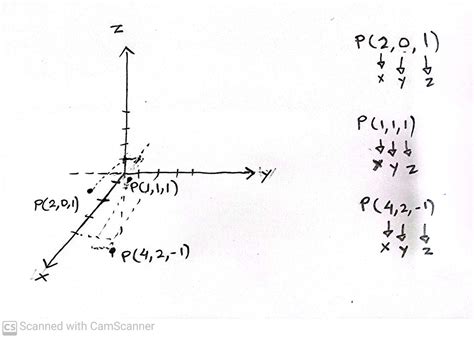 Z
P(2,0,1)
X Y Z
P(1,1,1)
X Y Z
Y
P(1,1,1)
P(2,0,1)
P(4,2,-1)
X Y Z
P(4,2,-1)
X
CS Scanned with CamScanner